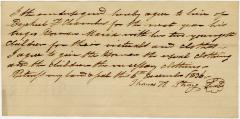 I the undersigned hereby agree to hire of
Bazhael F. Chambers for the next year his
negro woman Maria with her two youngest
children for their victuals and clothes
I agree to give the woman the usual clothing
and the children the necessary clothing
Witness my hand & seal this 6th December 1836
Thomas H.